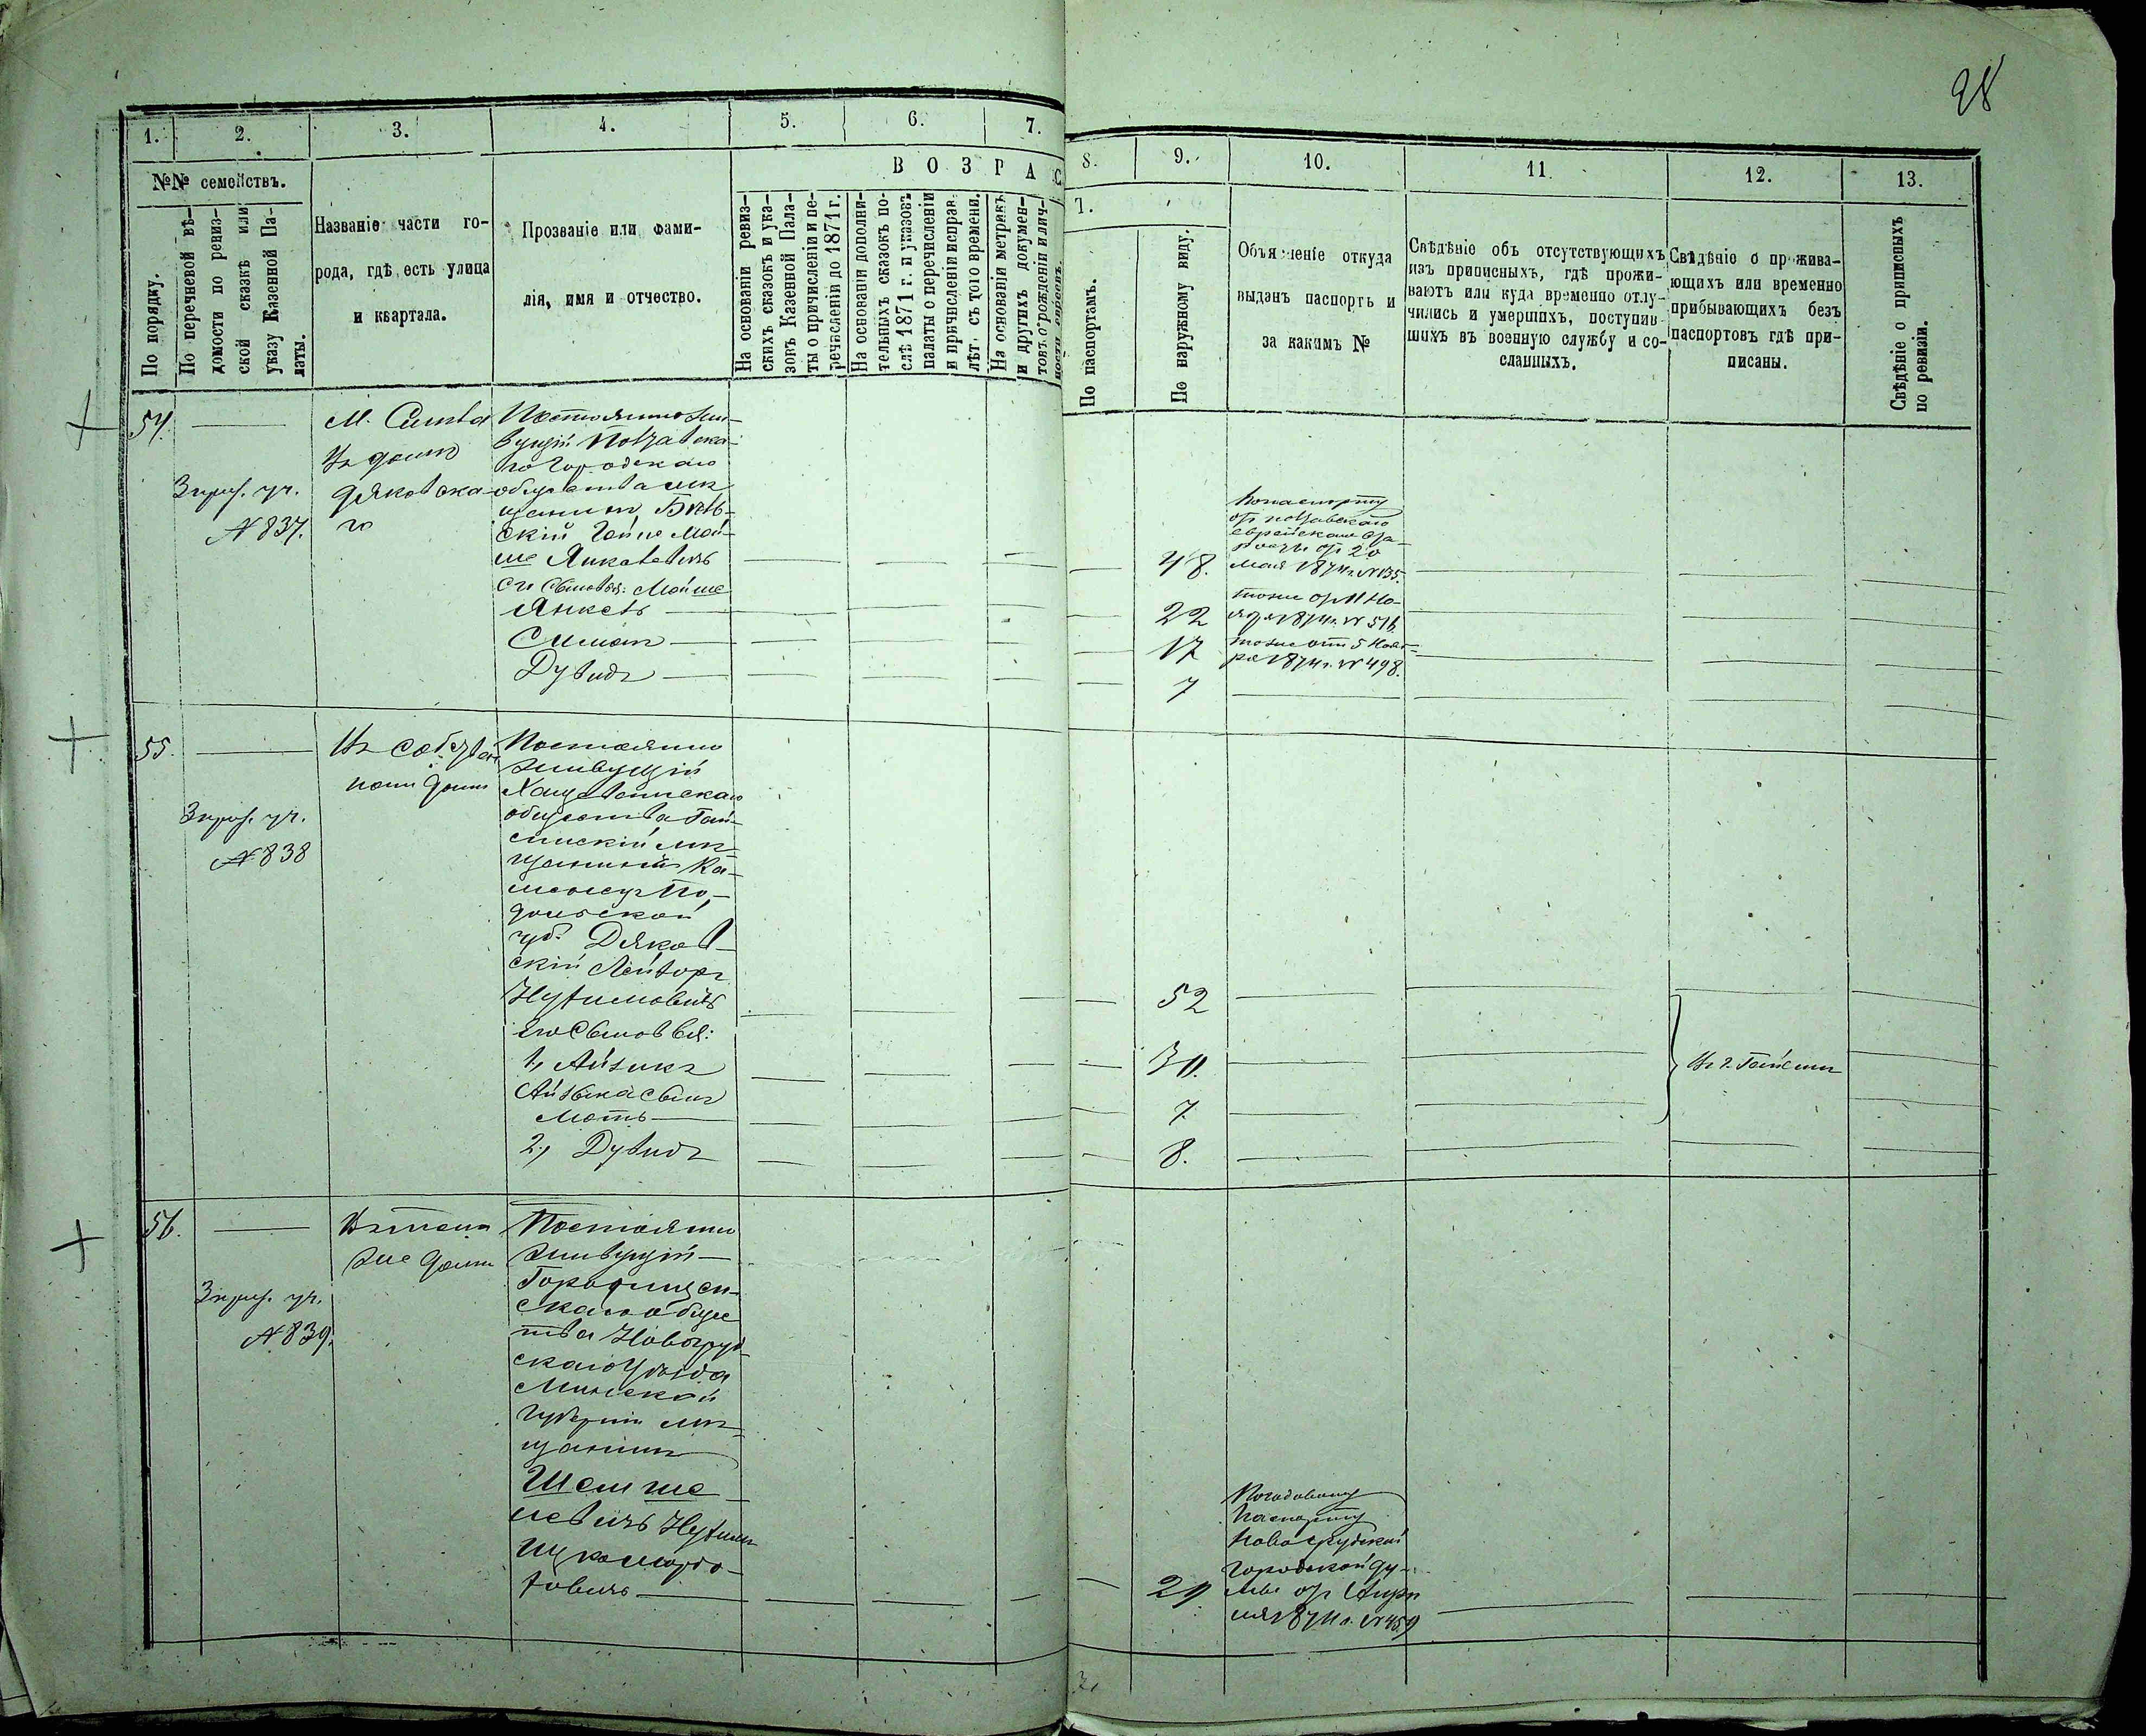 28
1.
2.
3.
4.
5.
6.
7.
8.
9.
10.
11.
12.
13.
№№ семействъ.
По порядку.
По перечневой вѣ-
домости по ревиз-
ской сказкѣ или
указу Казенной Па-
латы.
Названіе части го-
рода, гдѣ есть улица
и квартала.
Прозваніе или фами-
лія, имя и отчество.
ВОЗРАС
На основаніи ревиз-
скихъ сказокъ и ука-
зокъ Казенной Пала-
ты о причисленіи и пе-
речисленіи до 1871 г.
На основаніи дополни-
тельныхъ сказокъ по-
слѣ 1871 г. и указовъ
палаты о перечисленіи
и причисленіи исправ.
лѣт. съ того времени.
На основаніи метрикъ
и другихъ докумен-
товъ о рожденіи и лич-
ности евреевъ.
7.
По паспортамъ.
По наружному виду.
Объясненіе откуда
выданъ паспортъ и
за какимъ №
Свѣдѣніе объ отсутствующихъ
изъ приписныхъ, гдѣ прожи-
ваютъ или куда временно отлу-
чились и умершихъ, поступив-
шихъ въ военную службу и со-
сланныхъ.
Свѣдѣніе о прожива-
ющихъ или временно
прибывающихъ безъ
паспортовъ гдѣ при-
писаны.
Свѣдѣніе о приписныхъ
по ревизіи.
54.
уч.
№ 837.
М.
Въ домѣ
Дяковска-
го
Постоянно жи-
вущій
го Городскаго
общества мѣ-
щанинъ Бѣль-
скій Мой-
ше Янкелевичъ
его Сыновья: Мойше
Янкель
Симонъ
Дувидъ
48.
22
17
7
По паспорту
еврейскаго
20
Мая 1874 г. № 135.
тоже 11 Но-
ября 1874 г. № 516.
тоже отъ 5 Нояб-
ря 1874 г. № 498.
55.
уч.
№ 838
Въ собствен-
номъ домѣ
Постоянно
живущій
общества Гай-
синскій мѣ-
щанинъ Ка-
менецъ По-
дольской
губ. Дяков-
скій Лейзоръ
Нухимовичъ
его Сыновья:
1, Айзикъ
Айзика сынъ
Моть
2, Дувидъ
52
30.
7.
8.
Въ г. Гайсинѣ
56.
уч.
№ 839.
Въ томъ
же домѣ
Постоянно
живущій
Городищен-
скаго обще-
ства Новогруд-
скаго Уѣзда
Минской
губерніи мѣ-
щанинъ
Нухимъ
29
По годовому
паспорту
Новогрудской
городской ду-
мы отъ Апрѣ-
ля 1874 г. № 459